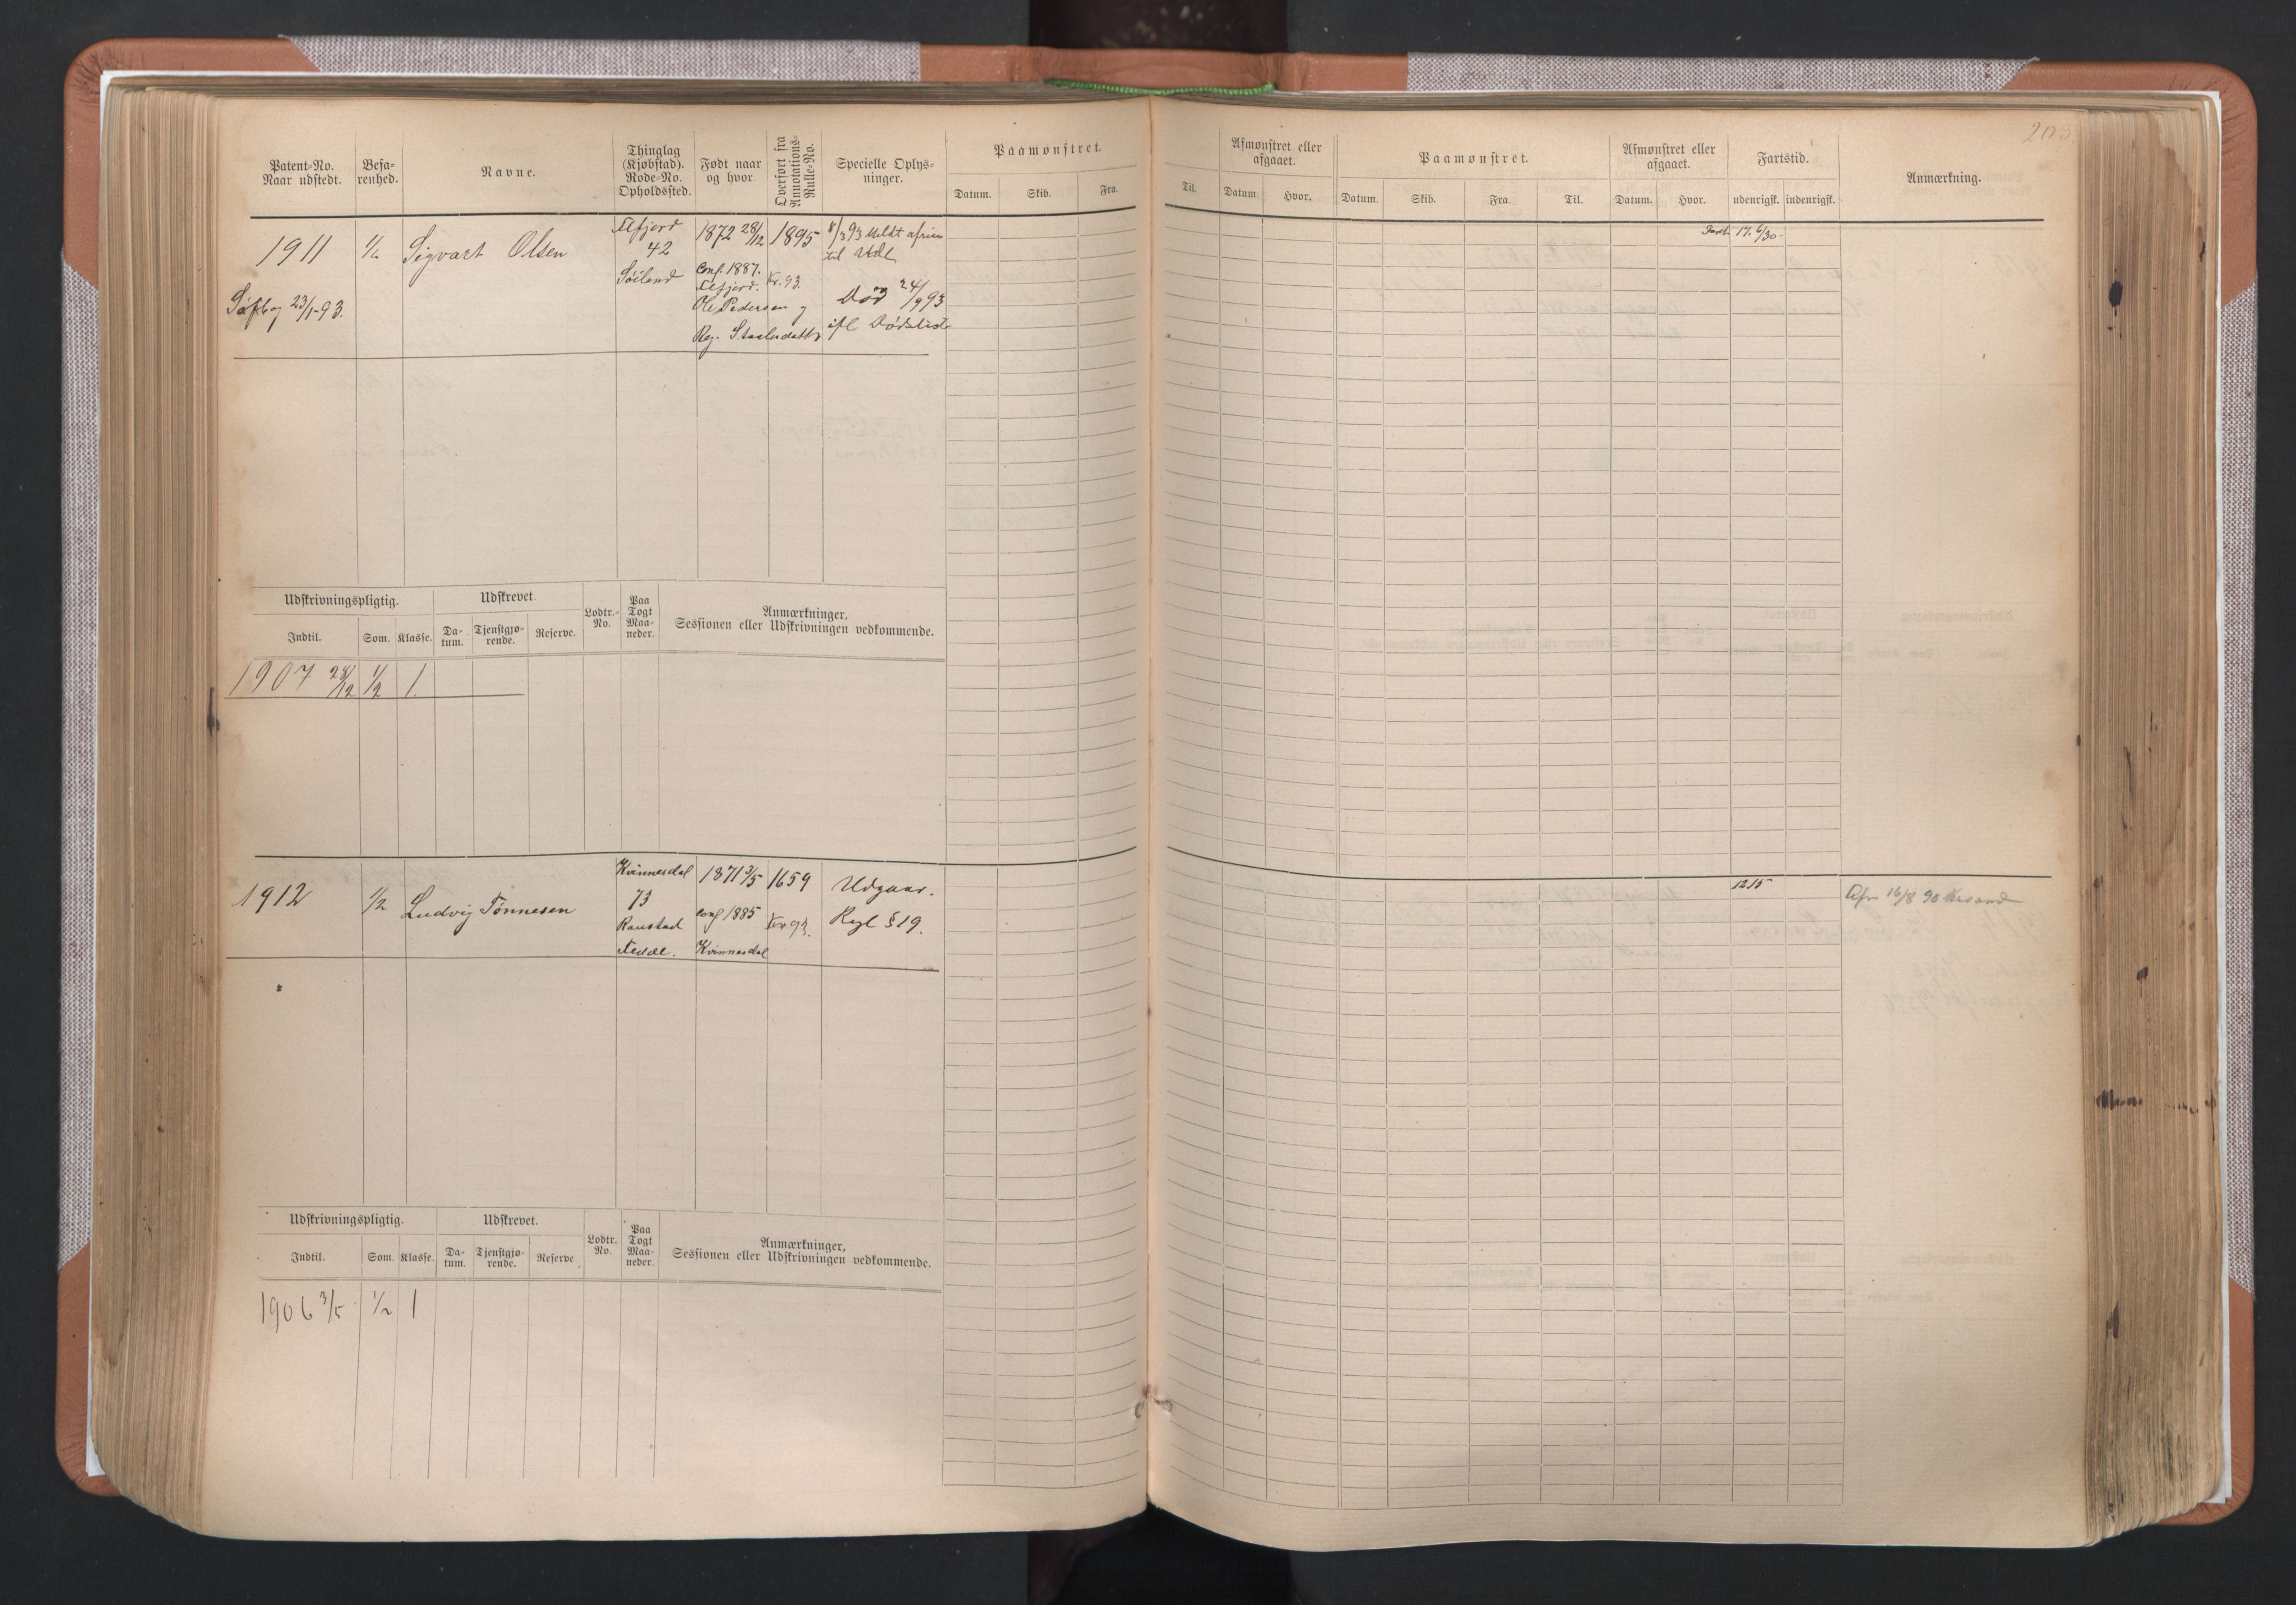 203
Patent-No.
Naar udstedt.
Befa-
renhed.
Navne.
Thinglag
(Kjøbstad).
Rode-No.
Opholdssted.
Født naar
og hvor
Overført fra
Annotations-
Rulle-No.
Specielle Oplys-
ninger.
Paamønstret.
Datum. Skib. Fra.
Til.
Afmønstret eller
afgaaet.
Datum. Hvor.
Paamønstret.
Datum. Skib. Fra. Til.
Afmønstret eller
afgaaet.
Datum. Hvor.
Fartstid.
udenrigsk. indenrigsk.
Anmærkning.
1911
23/1-93.
1/2
Sigvart Olsen
42
1872 28/12
Conf. 1887.
Ole Pedersen
1895
Kr. 93.
8/3 93 Meldt
til
Død 24/9 93
ifl Dødsliste
17. 6/30
Udskrivningspligtig.
Indtil. Som. Klasse.
Udskrevet.
Da-
tum.
Tjenstgjø-
rende.
Reserve.
Lodtr.-
No.
Paa
Togt
Maa-
neder.
Anmærkninger,
Sessionen eller Udskrivningen vedkommende.
1907 28/12 1/2 1
1912
1/2
Ludvig Tønnesen
Kvinnesdal
73
Raustad
Fedde.
1871 3/5
conf 1885
Kvinnesdal
1659
Kr 93.
Udgaar.
Regl § 19.
1215
Afm 16/8 90 Krsand
Udskrivningspligtig.
Indtil. Som. Klasse.
Udskrevet.
Da-
tum.
Tjenstgjø-
rende.
Reserve
Lodtr.
No.
Paa
Togt
Maa-
neder.
Anmærkninger,
Sessionen eller Udskrivningen vedkommende.
1906 3/5 1/2 1